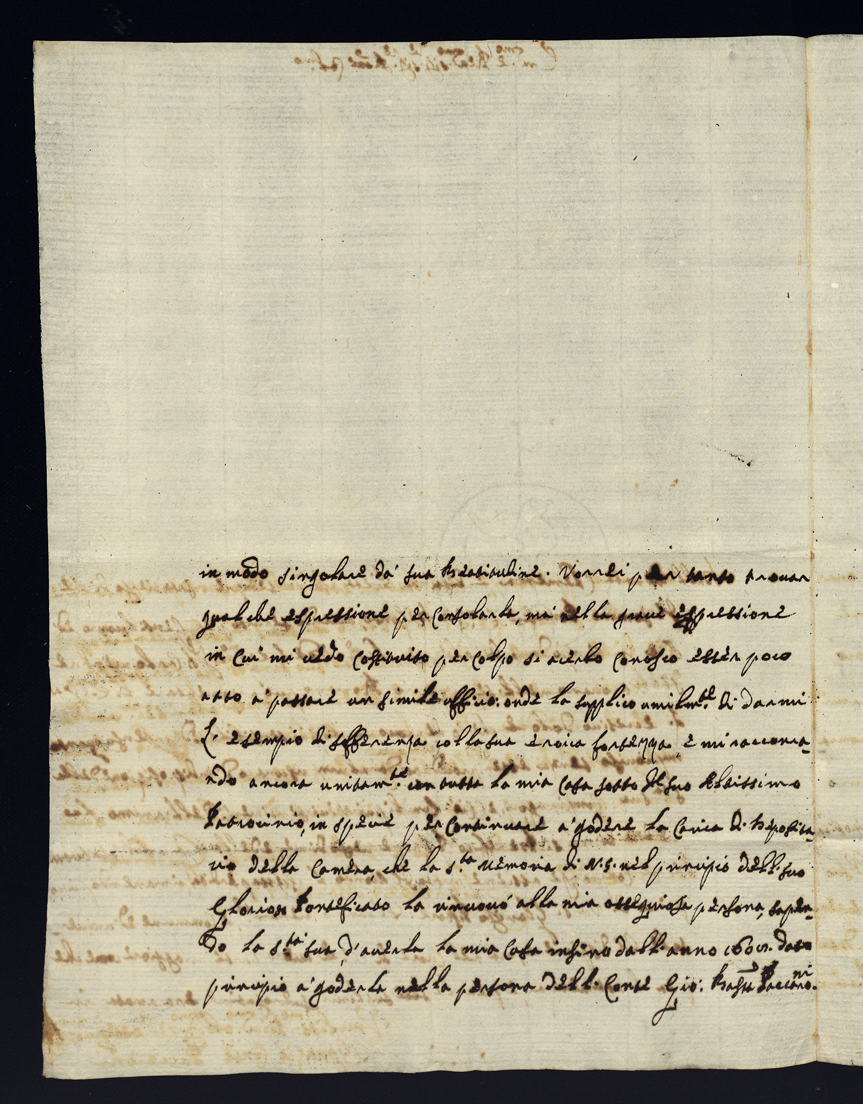 in modo singolare da' sua Beatitudine. Vorrei per tanto trouar
qualche espressione per consolarla, mà nella graue oppressione
in cui mi uedo costituito per colpo si acerbo conosco esser poco
atto a' passare un simile officio: onde la supplico umilm.te di darmi
L' esempio di sofferenza colla sua eroica fortezza, e mi raccoma-
ndo ancora unitam.te con tutta la mia Casa sotto il suo Altissimo
Patrocinio, in specie per continuare a' godere la Carica di Deposita-
rio della Camera, che la S.ta memoria di N.S. nel principio dell. suo
Glorioso Pontificato la rinouò alla mia ossequiosa persona, sapen-
do la S.tà sua, d'auerla la mia Casa insino dall. anno dato
principio a' goderla nella persona dell. Conte Gio: Batta